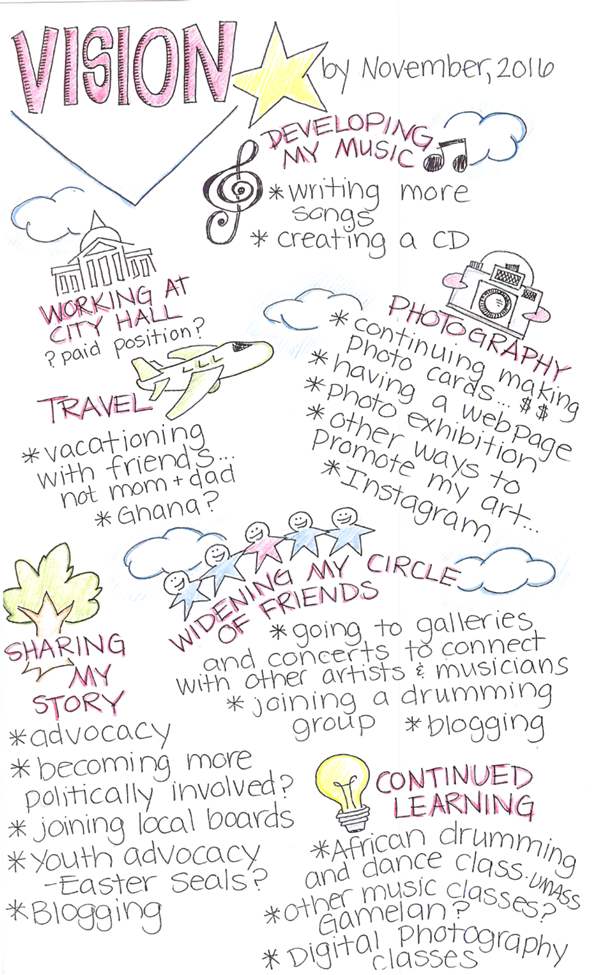 VISION
by November, 2016
DEVELOPING
MY MUSIC
*writing more
songs
* creating a CD
WORKING AT
CITY HALL
? paid position?
PHOTOGRAPHY
* continuing making
photo cards... $$
* having a webpage
* photo exhibition
* other ways to
promote my art...
* Instagram
TRAVEL
*vacationing
with friends...
not mom + dad
* Ghana?
WIDENING MY CIRCLE
OF FRIENDS
*going to galleries
and concerts to connect
with other artists & musicians
* joining a drumming
group *blogging
SHARING
MY
STORY
*advocacy
*becoming more
politically involved?
*joining local boards
*Youth advocacy
-Easter Seals?
*Blogging
CONTINUED
LEARNING
*African drumming
and dance class-UMASS
*other music classes?
Gamelan?
* Digital Photography
classes